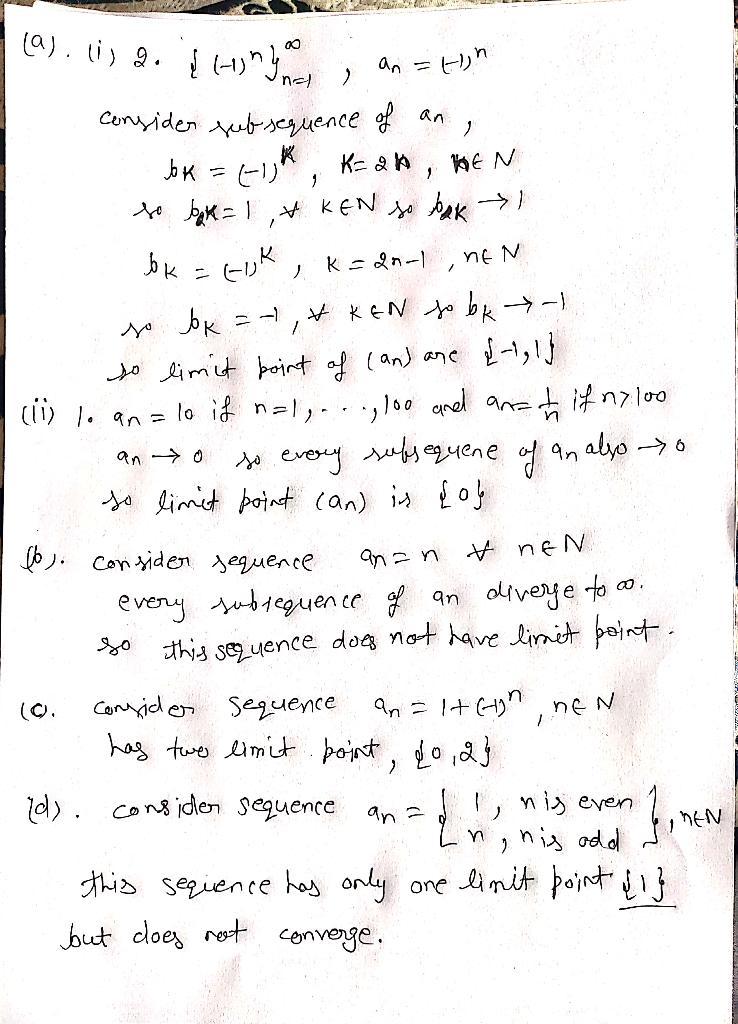 (a). (i) 2. {(-1)ⁿ}∞n=1 , an = (-1)ⁿ
consider subsequence of an ,
bK = (-1)ᴷ , K = 2n , n∈N
so bK = 1 , ∀ K∈N so bK → 1
bK = (-1)ᴷ , K = 2n-1 , n∈N
so bK = -1 , ∀ K∈N so bK → -1
so limit point of (an) are {-1,1}
(ii) 1. an = 10 if n=1,...,100 and an = 1/n if n>100
an → 0 so every subsequene of an also → 0
so limit point (an) is {0}
(b). consider sequence an = n ∀ n∈N
every subsequence of an diverge to ∞.
so this sequence does not have limit point.
(c. consider sequence an = 1+(-1)ⁿ , n∈N
has two limit point, {0,2}
(d). consider sequence an = { 1 , n is even
n , n is odd } , n∈N
this sequence has only one limit point {1}
but does not converge.